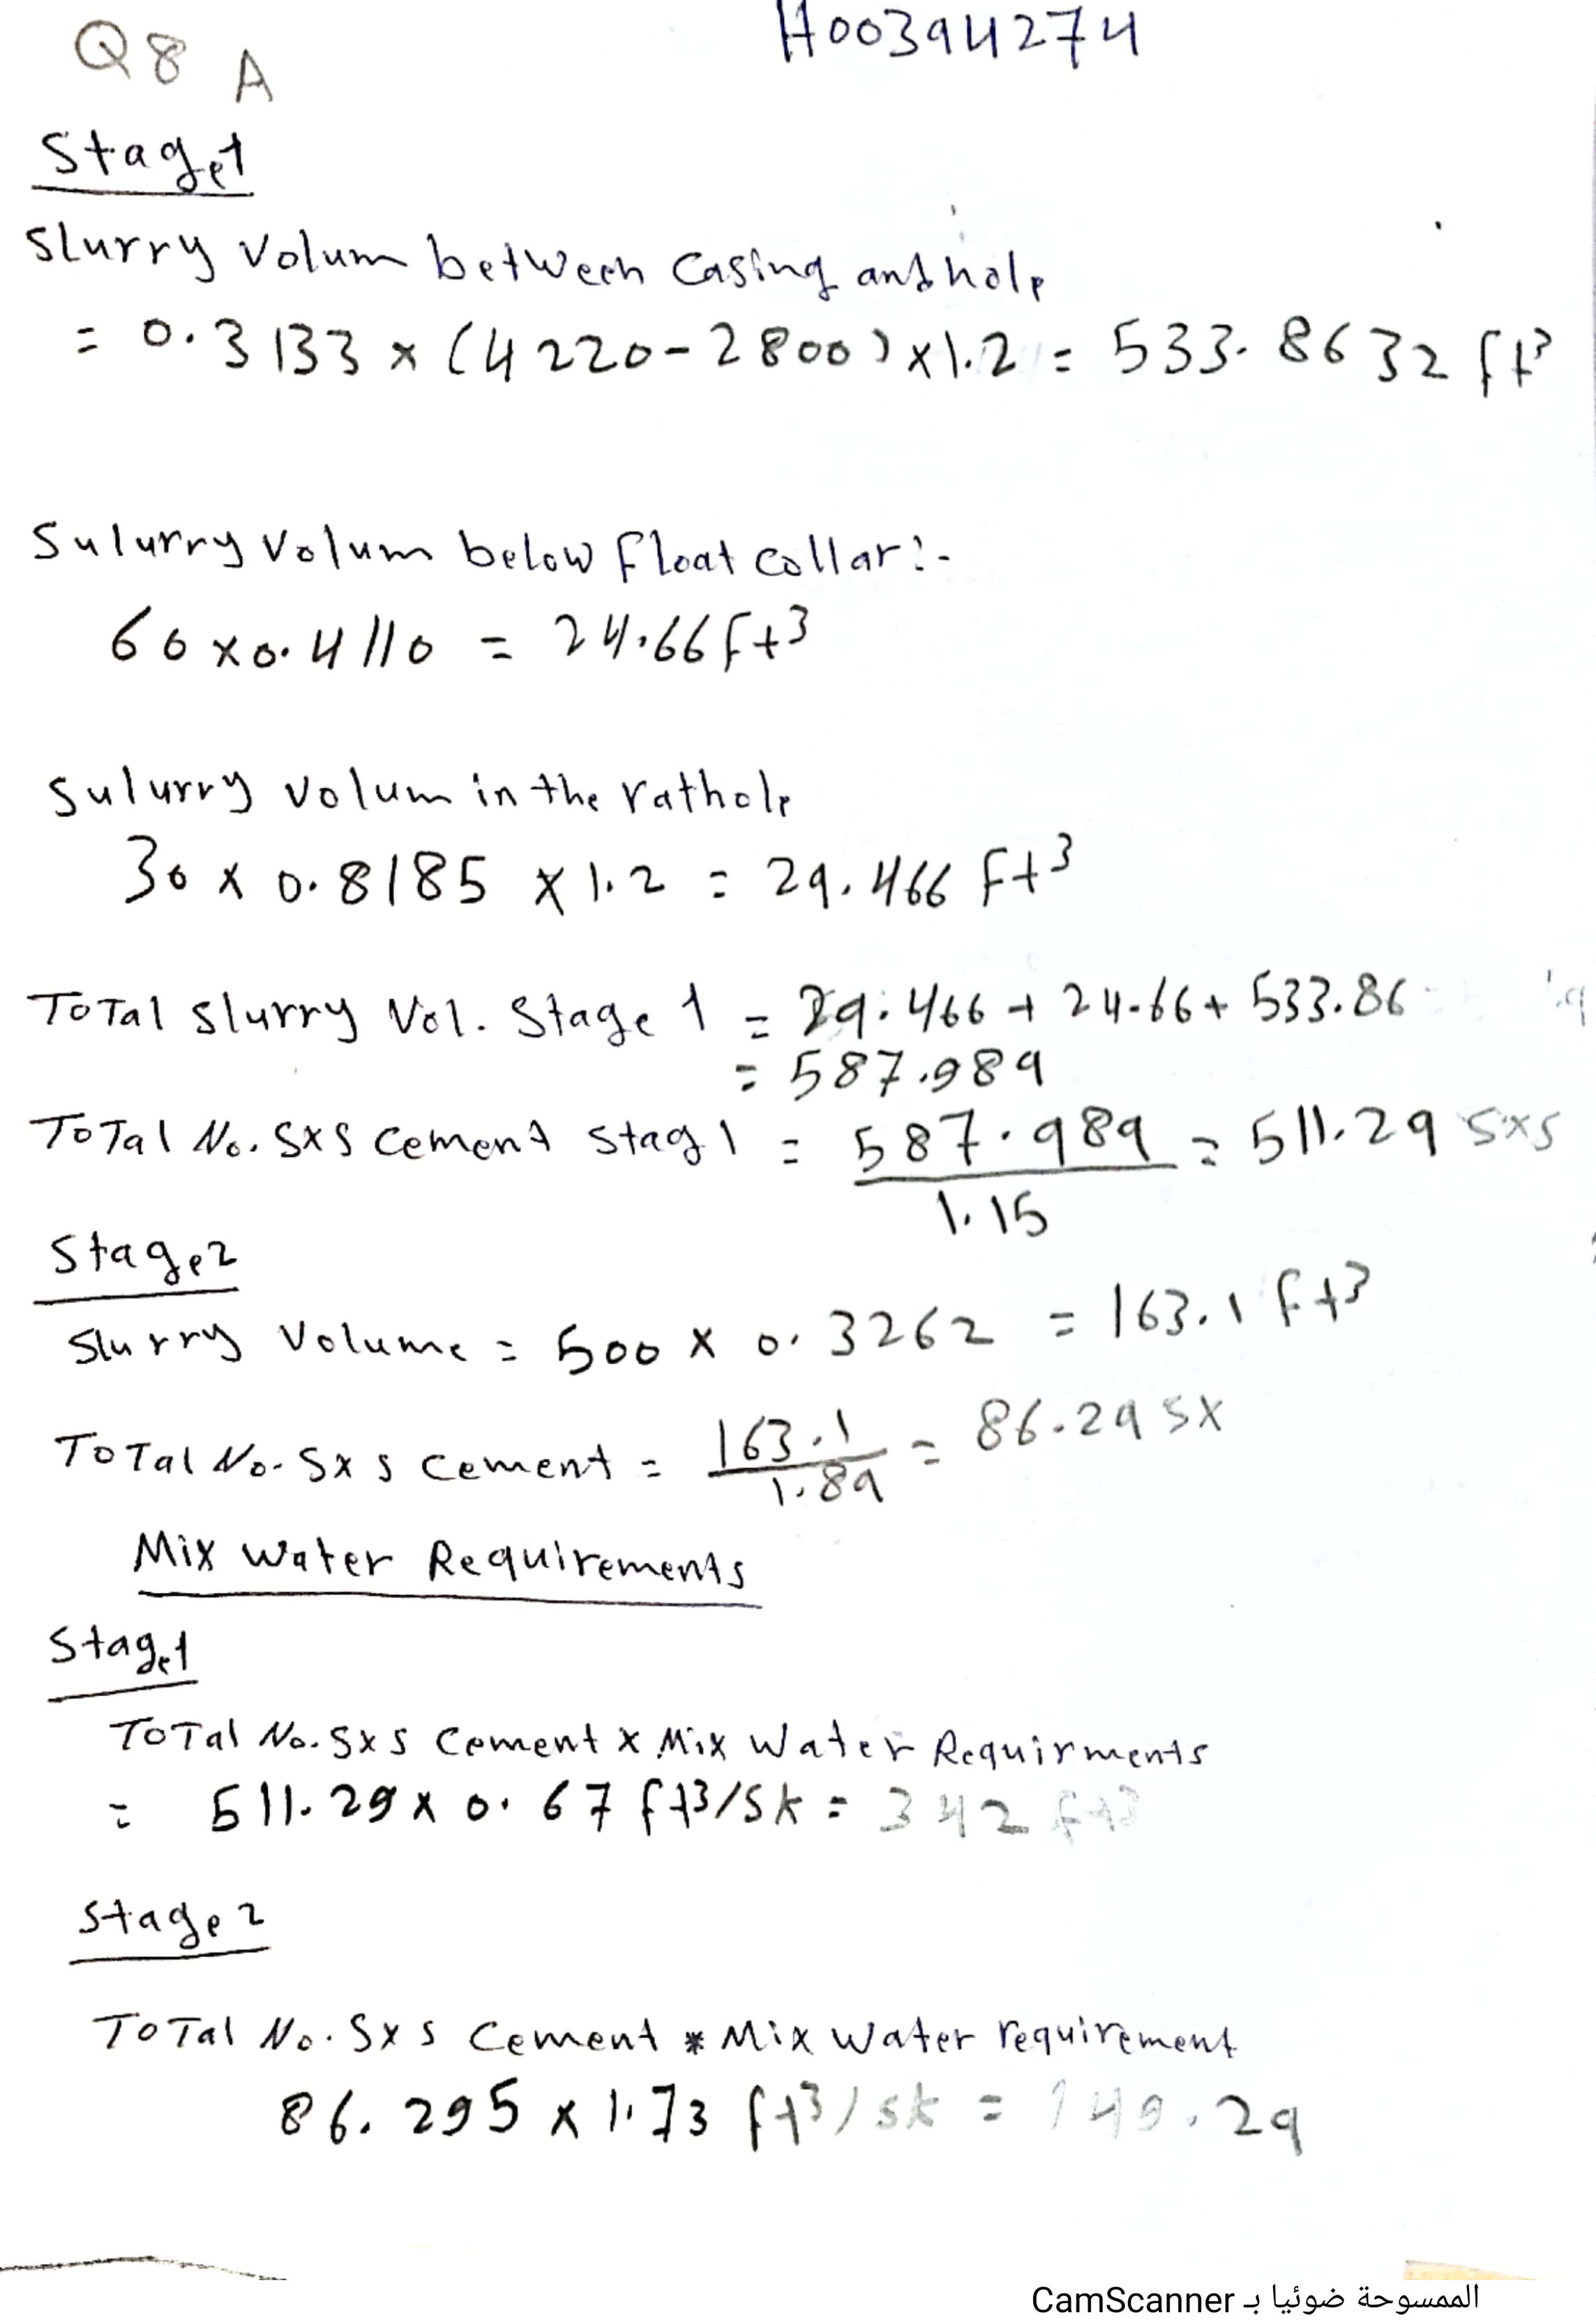 Q8 A
H00394274
Stage1
Slurry Volum between Casing and hole
= 0.3133 x (4220-2800) x 1.2 = 533.8632 ft³
Sulurry Volum below Float Collar:-
60 x 0.4110 = 24.66 Ft³
Sulurry Volum in the rathole
30 x 0.8185 x 1.2 = 29.466 Ft³
ToTal Slurry Vol. Stage 1 = 29.466 + 24.66 + 533.86
= 587.989
ToTal No. SxS Cement Stag 1 = 587.989 / 1.15 = 511.29 SxS
Stage2
Slurry Volume = 500 x 0.3262 = 163.1 ft³
ToTal No. SxS Cement = 163.1 / 1.89 = 86.29 SX
Mix Water Requirements
Stage1
ToTal No. SxS Cement x Mix Water Requirments
= 511.29 x 0.67 ft3/Sk = 342 ft3
Stage 2
ToTal No. SxS Cement * Mix Water requirement
86.295 x 1.73 ft³/sk = 149.29
الممسوحة ضوئيا بـ CamScanner